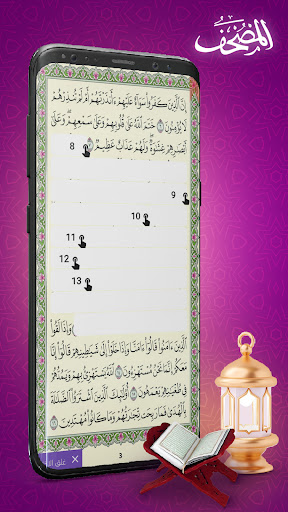 المصحف
إِنَّ ٱلَّذِينَ كَفَرُوا۟ سَوَآءٌ عَلَيْهِمْ ءَأَنذَرْتَهُمْ أَمْ لَمْ تُنذِرْهُمْ
لَا يُؤْمِنُونَ ٦ خَتَمَ ٱللَّهُ عَلَىٰ قُلُوبِهِمْ وَعَلَىٰ سَمْعِهِمْ وَعَلَىٰٓ
أَبْصَٰرِهِمْ غِشَٰوَةٌ وَلَهُمْ عَذَابٌ عَظِيمٌ ٧
8
9
10
11
12
13
وَإِذَا لَقُوا۟
ٱلَّذِينَ ءَامَنُوا۟ قَالُوٓا۟ ءَامَنَّا وَإِذَا خَلَوْا۟ إِلَىٰ شَيَٰطِينِهِمْ قَالُوٓا۟ إِنَّا
مَعَكُمْ إِنَّمَا نَحْنُ مُسْتَهْزِءُونَ ١٤ ٱللَّهُ يَسْتَهْزِئُ بِهِمْ وَيَمُدُّهُمْ
فِى طُغْيَٰنِهِمْ يَعْمَهُونَ ١٥ أُو۟لَٰٓئِكَ ٱلَّذِينَ ٱشْتَرَوُا۟ ٱلضَّلَٰلَةَ
بِٱلْهُدَىٰ فَمَا رَبِحَت تِّجَٰرَتُهُمْ وَمَا كَانُوا۟ مُهْتَدِينَ ١٦
3
غلق